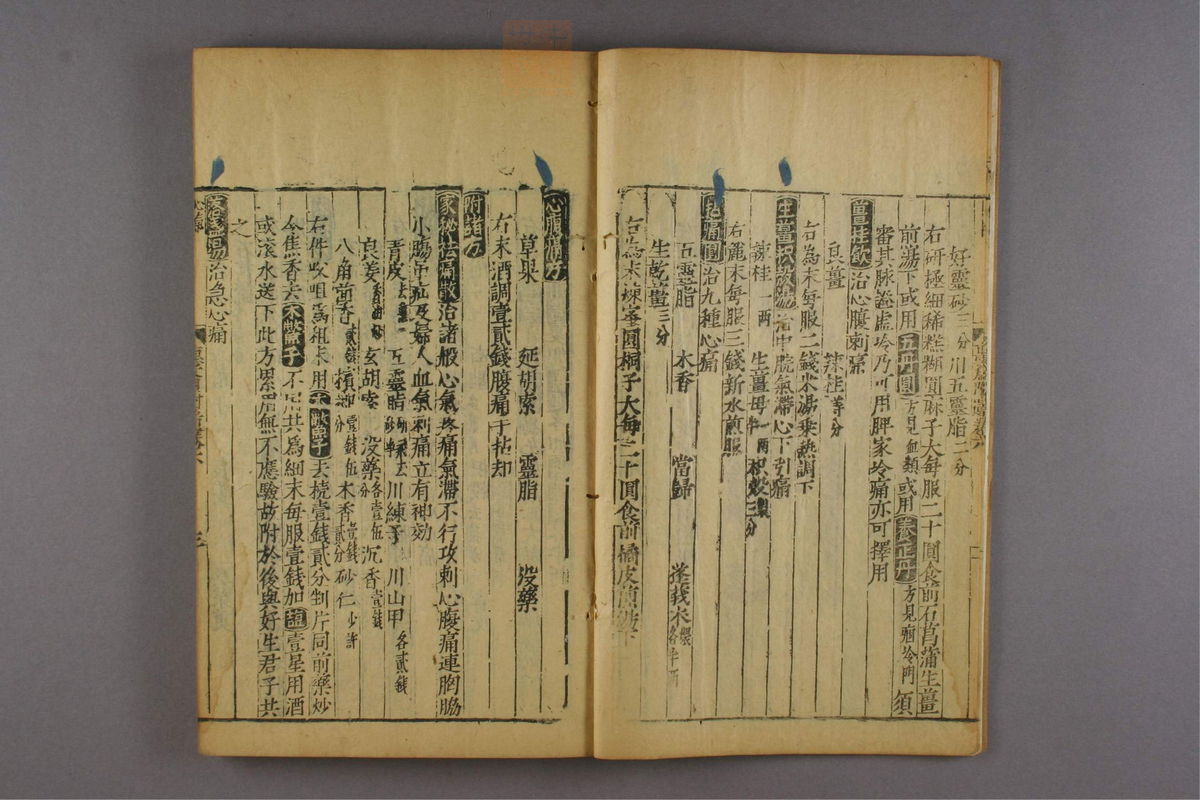 好靈砂三分 川五靈脂二分
右研極細稀糕糊圓麻子大每服二十圓食前石菖蒲生薑
前湯下或用五丹圓方見血類或用養正丹方見痼冷門須
審其脉證虛冷乃可用脾家冷痛亦可擇用
薑桂飲治心腹刺痛
良薑 辣桂等分
右為末每服二錢米湯乗熱調下
生薑枳殼湯治中脘氣滯心下引痛
辣桂一兩 生薑母半兩 枳殼製三分
右麄末每服三錢新水煎服
拈痛圓治九種心痛
五靈脂 木香 當歸 蓬莪朮煨各半兩
生乾薑三分
右為末煉蜜圓桐子大每二十圓食前橘皮煎湯下
心腹痛方
草果 延胡索 靈脂 没藥
右末酒調壹貳錢腹痛于拈却
附諸方
家秘祛痛散治諸般心氣疼痛氣滯不行攻刺心腹痛連胸脇
小腸弔疝及婦人血氣刺痛立有神効
青皮去 五靈脂 川練子 川山甲各貳錢
良姜香油炒 玄胡索 没藥各壹錢伍分 沉香壹錢
八角茴香貳錢 檳榔壹錢伍分 木香壹錢貳分 砂仁少許
右件㕮咀為粗末用木鱉子去殼壹錢貳分剉片同前藥炒
令焦香去木鱉子不用共爲細末每服壹錢加鹽壹星用酒
或滚水送下此方累用無不應驗故附於後與好生君子共
之
治急心痛